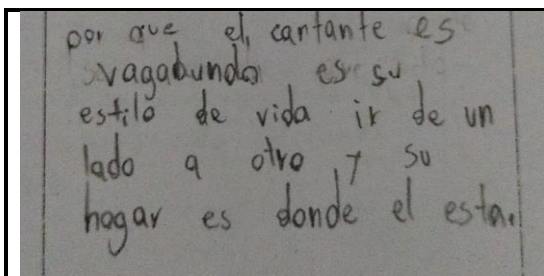 por que el, cantante es
vagabundo es su
estilo de vida ir de un
lado a otro y su
hogar es donde el esta.